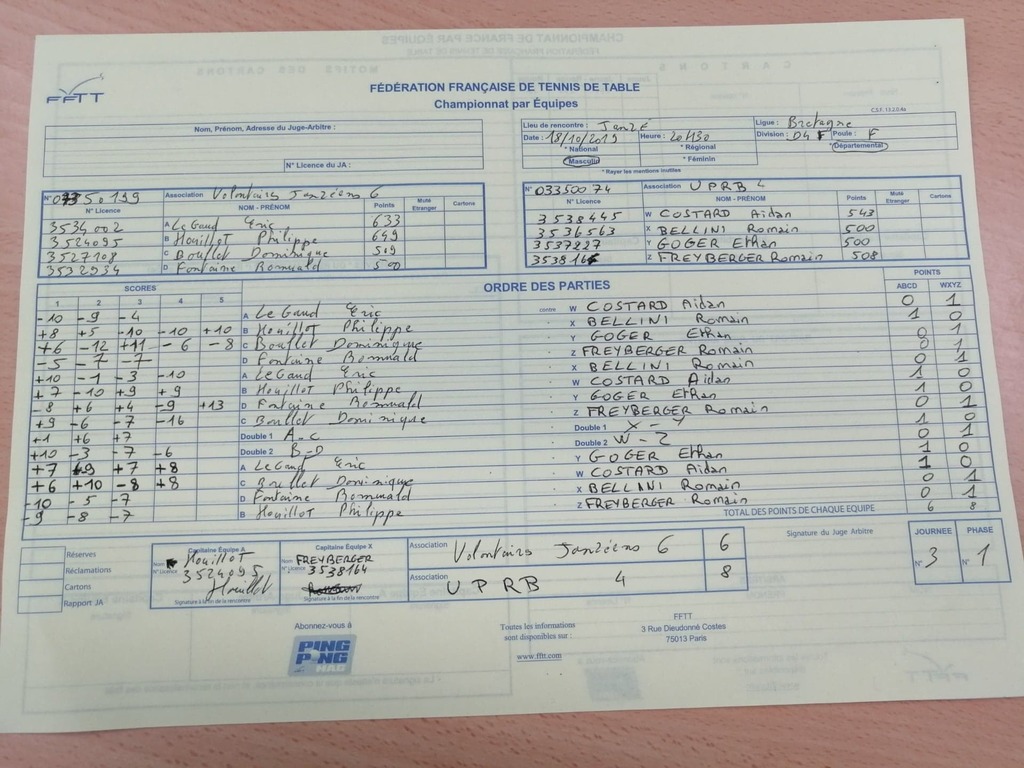 FFTT
FÉDÉRATION FRANÇAISE DE TENNIS DE TABLE
Championnat par Équipes
C.S.F. 13.2.0.4a
Nom, Prénom, Adresse du Juge-Arbitre :
N° Licence du JA :
Lieu de rencontre : Janzé Ligue : Bretagne
Date : 18/10/2019 Heure : 20H30 Division : D4 F Poule : F
* National * Régional * Départemental
* Masculin * Féminin
* Rayer les mentions inutiles
Association Volontaires Janzéens 6
N° Licence NOM - PRÉNOM Points Muté Etranger Cartons
3534002 A Le Gaud Eric 633
3524095 B Houillot Philippe 649
3527108 C Boullet Dominique 509
3532934 D Fontaine Romuald 500
N° 03350074 Association UPRB 4
N° Licence NOM - PRÉNOM Points Muté Etranger Cartons
3538445 W COSTARD Aidan 543
3536563 X BELLINI Romain 500
3537227 Y GOGER Ethan 500
Z FREYBERGER Romain 508
SCORES ORDRE DES PARTIES POINTS
1 2 3 4 5 ABCD WXYZ
-10 -9 -4 A Le Gaud Eric contre W COSTARD Aidan 0 1
+8 +5 -10 -10 +10 B Houillot Philippe X BELLINI Romain 1 0
+6 -12 +11 -6 -8 C Boullet Dominique Y GOGER Ethan 0 1
-5 -7 -7 D Fontaine Romuald Z FREYBERGER Romain 0 1
+10 -1 -3 -10 A Le Gaud Eric X BELLINI Romain 0 1
+7 -10 +9 +9 B Houillot Philippe W COSTARD Aidan 1 0
-8 +6 +4 -9 +13 D Fontaine Romuald Y GOGER Ethan 1 0
+9 -6 -7 -16 C Boullet Dominique Z FREYBERGER Romain 0 1
+1 +6 +7 Double 1 A-C Double 1 X-Y 1 0
+10 -3 -7 -6 Double 2 B-D Double 2 W-Z 0 1
+7 +9 +7 +8 A Le Gaud Eric Y GOGER Ethan 1 0
+6 +10 -8 +8 C Boullet Dominique W COSTARD Aidan 1 0
-10 -5 -7 D Fontaine Romuald X BELLINI Romain 0 1
-9 -8 -7 B Houillot Philippe Z FREYBERGER Romain 0 1
TOTAL DES POINTS DE CHAQUE EQUIPE 6 8
Réserves
Réclamations
Cartons
Rapport JA
Capitaine Équipe A
Nom Houillot
N° Licence 3524095
Houillot
Signature à la fin de la rencontre
Capitaine Équipe X
Nom FREYBERGER
N° Licence 3538164
Signature à la fin de la rencontre
Association Volontaires Janzéens 6 6
Association UPRB 4 8
Signature du Juge Arbitre
JOURNEE PHASE
N° 3 N° 1
Abonnez-vous à
PING PONG MAG
Toutes les informations
sont disponibles sur :
www.fftt.com
FFTT
3 Rue Dieudonné Costes
75013 Paris